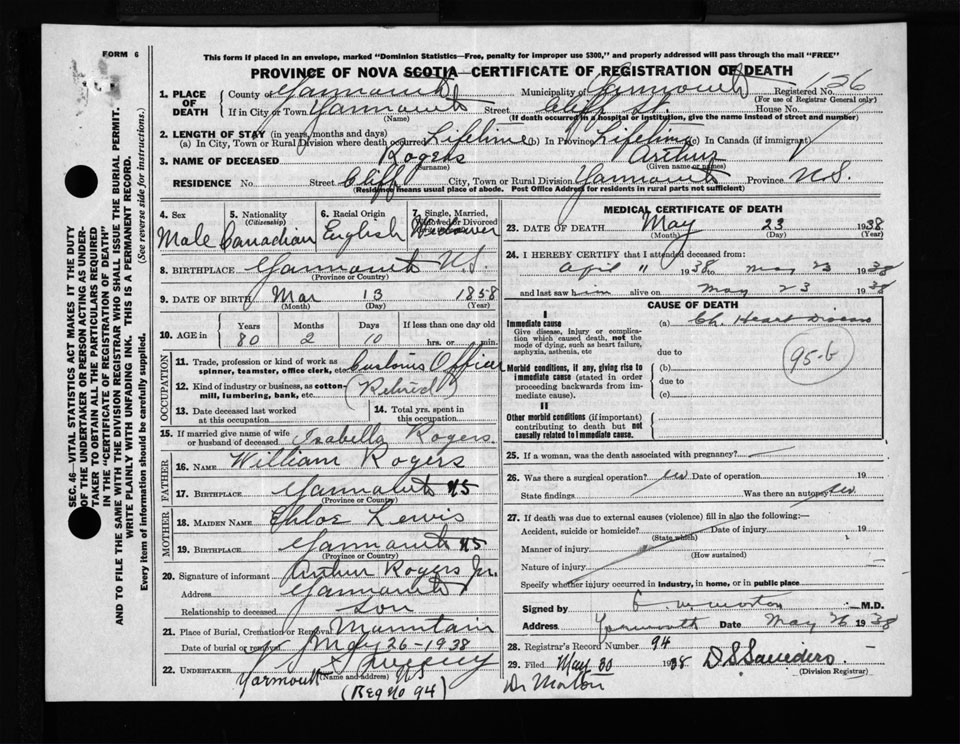 FORM 6
This form if placed in an envelope, marked "Dominion Statistics—Free, penalty for improper use $300," and properly addressed will pass through the mail "FREE"
PROVINCE OF NOVA SCOTIA—CERTIFICATE OF REGISTRATION OF DEATH
1. PLACE OF DEATH
County of Yarmouth Municipality of Yarmouth Registered No. 126
(For use of Registrar General only)
If in City or Town Yarmouth Street Cliff St. House No.
(Name) (If death occurred in a hospital or institution, give the name instead of street and number)
2. LENGTH OF STAY (in years, months and days)
(a) In City, Town or Rural Division where death occurred Lifetime (b) In Province Lifetime (c) In Canada (if immigrant)
3. NAME OF DECEASED Rogers Arthur
(Surname) (Given name or names)
RESIDENCE No. Street Cliff City, Town or Rural Division Yarmouth Province N.S.
(Residence means usual place of abode. Post Office Address for residents in rural parts not sufficient)
4. Sex
Male
5. Nationality
(Citizenship)
Canadian
6. Racial Origin
English
7. Single, Married, Widowed or Divorced
Widower
8. BIRTHPLACE Yarmouth N.S.
(Province or Country)
9. DATE OF BIRTH Mar 13 1858
(Month) (Day) (Year)
10. AGE in
Years Months Days If less than one day old
80 2 10 hrs. or min.
OCCUPATION
11. Trade, profession or kind of work as spinner, teamster, office clerk, etc. Customs Officer
12. Kind of industry or business, as cotton-mill, lumbering, bank, etc. (Retired)
13. Date deceased last worked at this occupation
14. Total yrs. spent in this occupation
15. If married give name of wife or husband of deceased Isabella Rogers.
FATHER
16. NAME William Rogers
17. BIRTHPLACE Yarmouth NS
(Province or Country)
MOTHER
18. MAIDEN NAME Chloe Lewis
19. BIRTHPLACE Yarmouth NS
(Province or Country)
20. Signature of informant Arthur Rogers Jr.
Address Yarmouth
Relationship to deceased son
21. Place of Burial, Cremation or Removal Mountain
Date of burial or removal May 26-1938
22. UNDERTAKER Sweeny
(Name and address)
Yarmouth NS
(Reg no 94)
MEDICAL CERTIFICATE OF DEATH
23. DATE OF DEATH May 23 1938
(Month) (Day) (Year)
24. I HEREBY CERTIFY that I attended deceased from:
April 11 1938 to May 23 1938
and last saw him alive on May 23 1938
CAUSE OF DEATH
I
Immediate cause
Give disease, injury or complication which caused death, not the mode of dying, such as heart failure, asphyxia, asthenia, etc
(a) Ch. Heart Disease
due to
95-b
Morbid conditions, if any, giving rise to immediate cause (stated in order proceeding backwards from immediate cause).
(b)
due to
(c)
II
Other morbid conditions (if important) contributing to death but not causally related to immediate cause.
25. If a woman, was the death associated with pregnancy?
26. Was there a surgical operation? no Date of operation 19
State findings Was there an autopsy? no
27. If death was due to external causes (violence) fill in also the following:—
Accident, suicide or homicide? Date of injury 19
(State which)
Manner of injury
(How sustained)
Nature of injury
Specify whether injury occurred in industry, in home, or in public place
Signed by M.D.
Address Yarmouth Date May 26 1938
28. Registrar's Record Number 94
29. Filed May 30 1938 D S Saunders
(Division Registrar)
Dr Morton
SEC. 46—VITAL STATISTICS ACT MAKES IT THE DUTY
OF THE UNDERTAKER OR PERSON ACTING AS UNDER-
TAKER TO OBTAIN ALL THE PARTICULARS REQUIRED
IN THE "CERTIFICATE OF REGISTRATION OF DEATH"
AND TO FILE THE SAME WITH THE DIVISION REGISTRAR WHO SHALL ISSUE THE BURIAL PERMIT.
WRITE PLAINLY WITH UNFADING INK. THIS IS A PERMANENT RECORD.
Every item of information should be carefully supplied. (See reverse side for Instructions.)